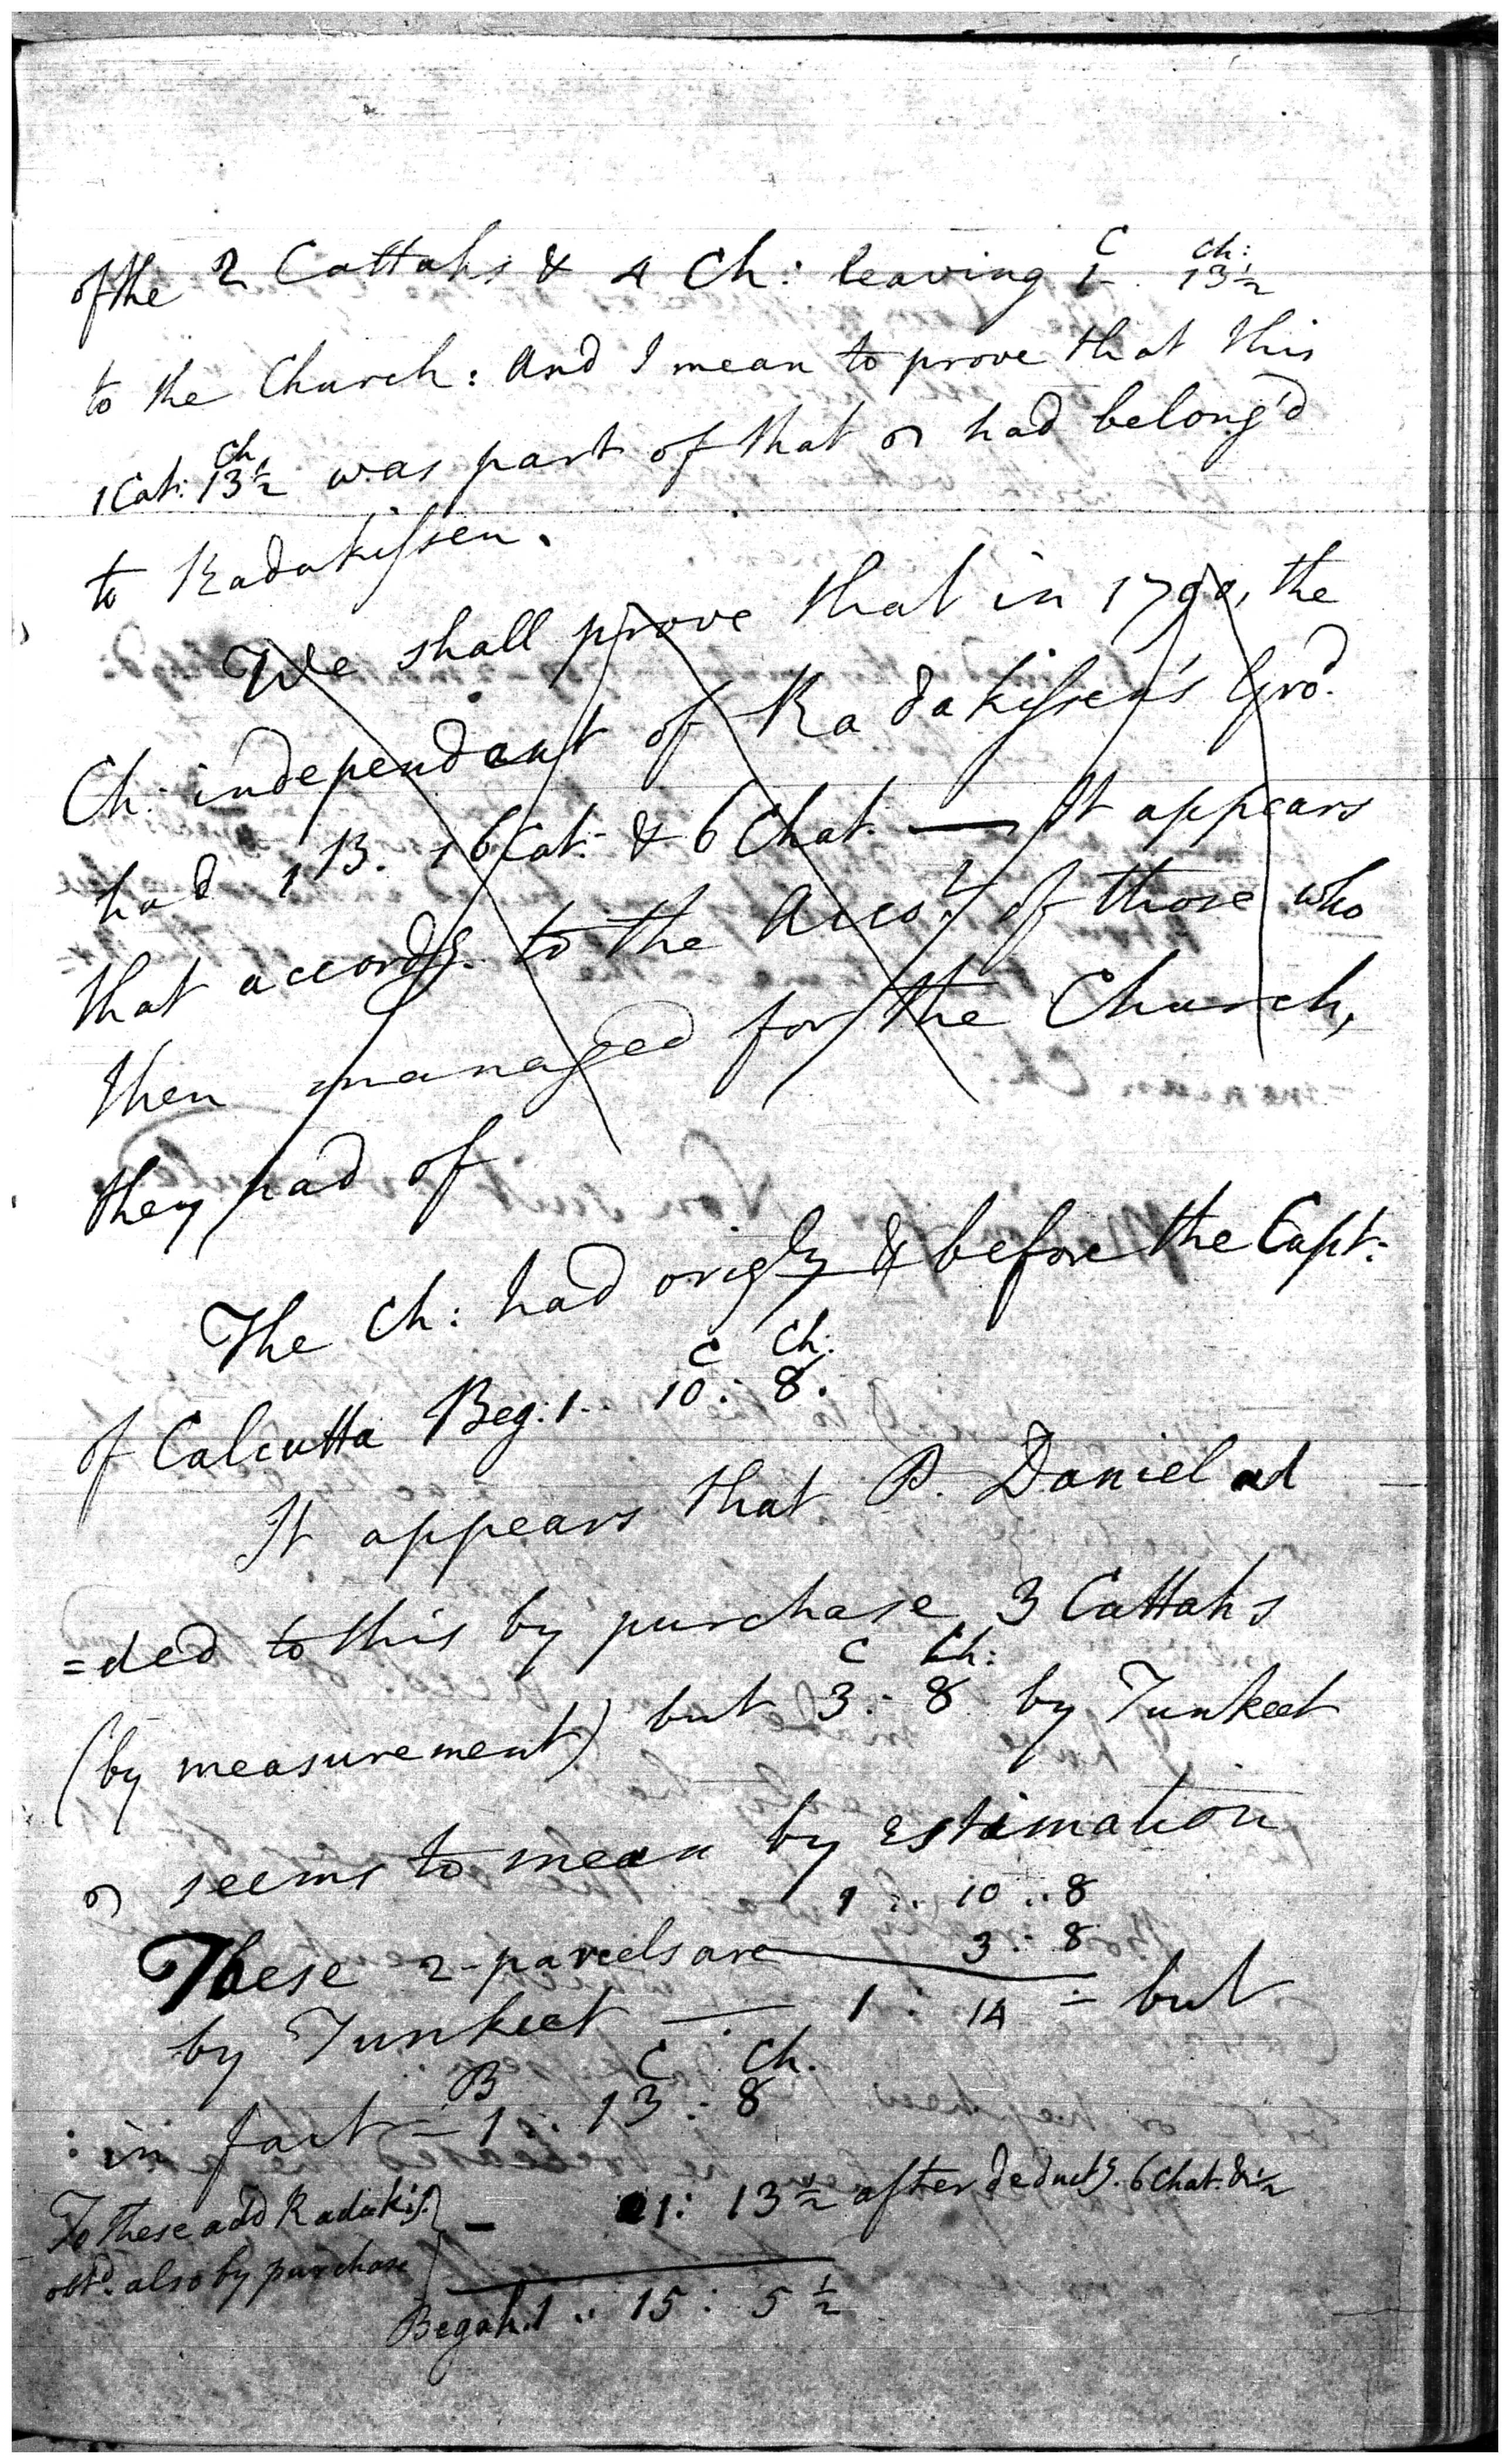 of the 2 Cattahs & 4 Ch: leaving 1 C 13½ Ch:
to the Church: And I mean to prove that this
1 Cat: 13½ Ch was part of that or had belong'd
to Radakissen.
We shall prove that in 1790, the
Ch: independant of Radakissen's Grd.
had 1 B. 16 Cat: & 6 Chat. — It appears
that accordg. to the Acco.t of those who
then managed for the Church,
they had of
The Ch: had origly & before the Capt:
of Calcutta Beg: 1.. 10 C : 8 Ch:.
It appears that P. Daniel ad
=ded to this by purchase 3 Cattahs
(by measurement) but 3 C : 8 Ch: by Tunkeet
or seems to mean by Estimation
1 .. 10 .. 8
These 2 parcels are 3 : 8
by Tunkeet — 1 : 14 = but
B C Ch.
: in fact — 1 : 13 : 8
To these add Radakis.
obtd. also by purchase } — 1 : 13½ after deductg. 6 Chat. & ½
Begah. 1 .. 15 : 5 ½